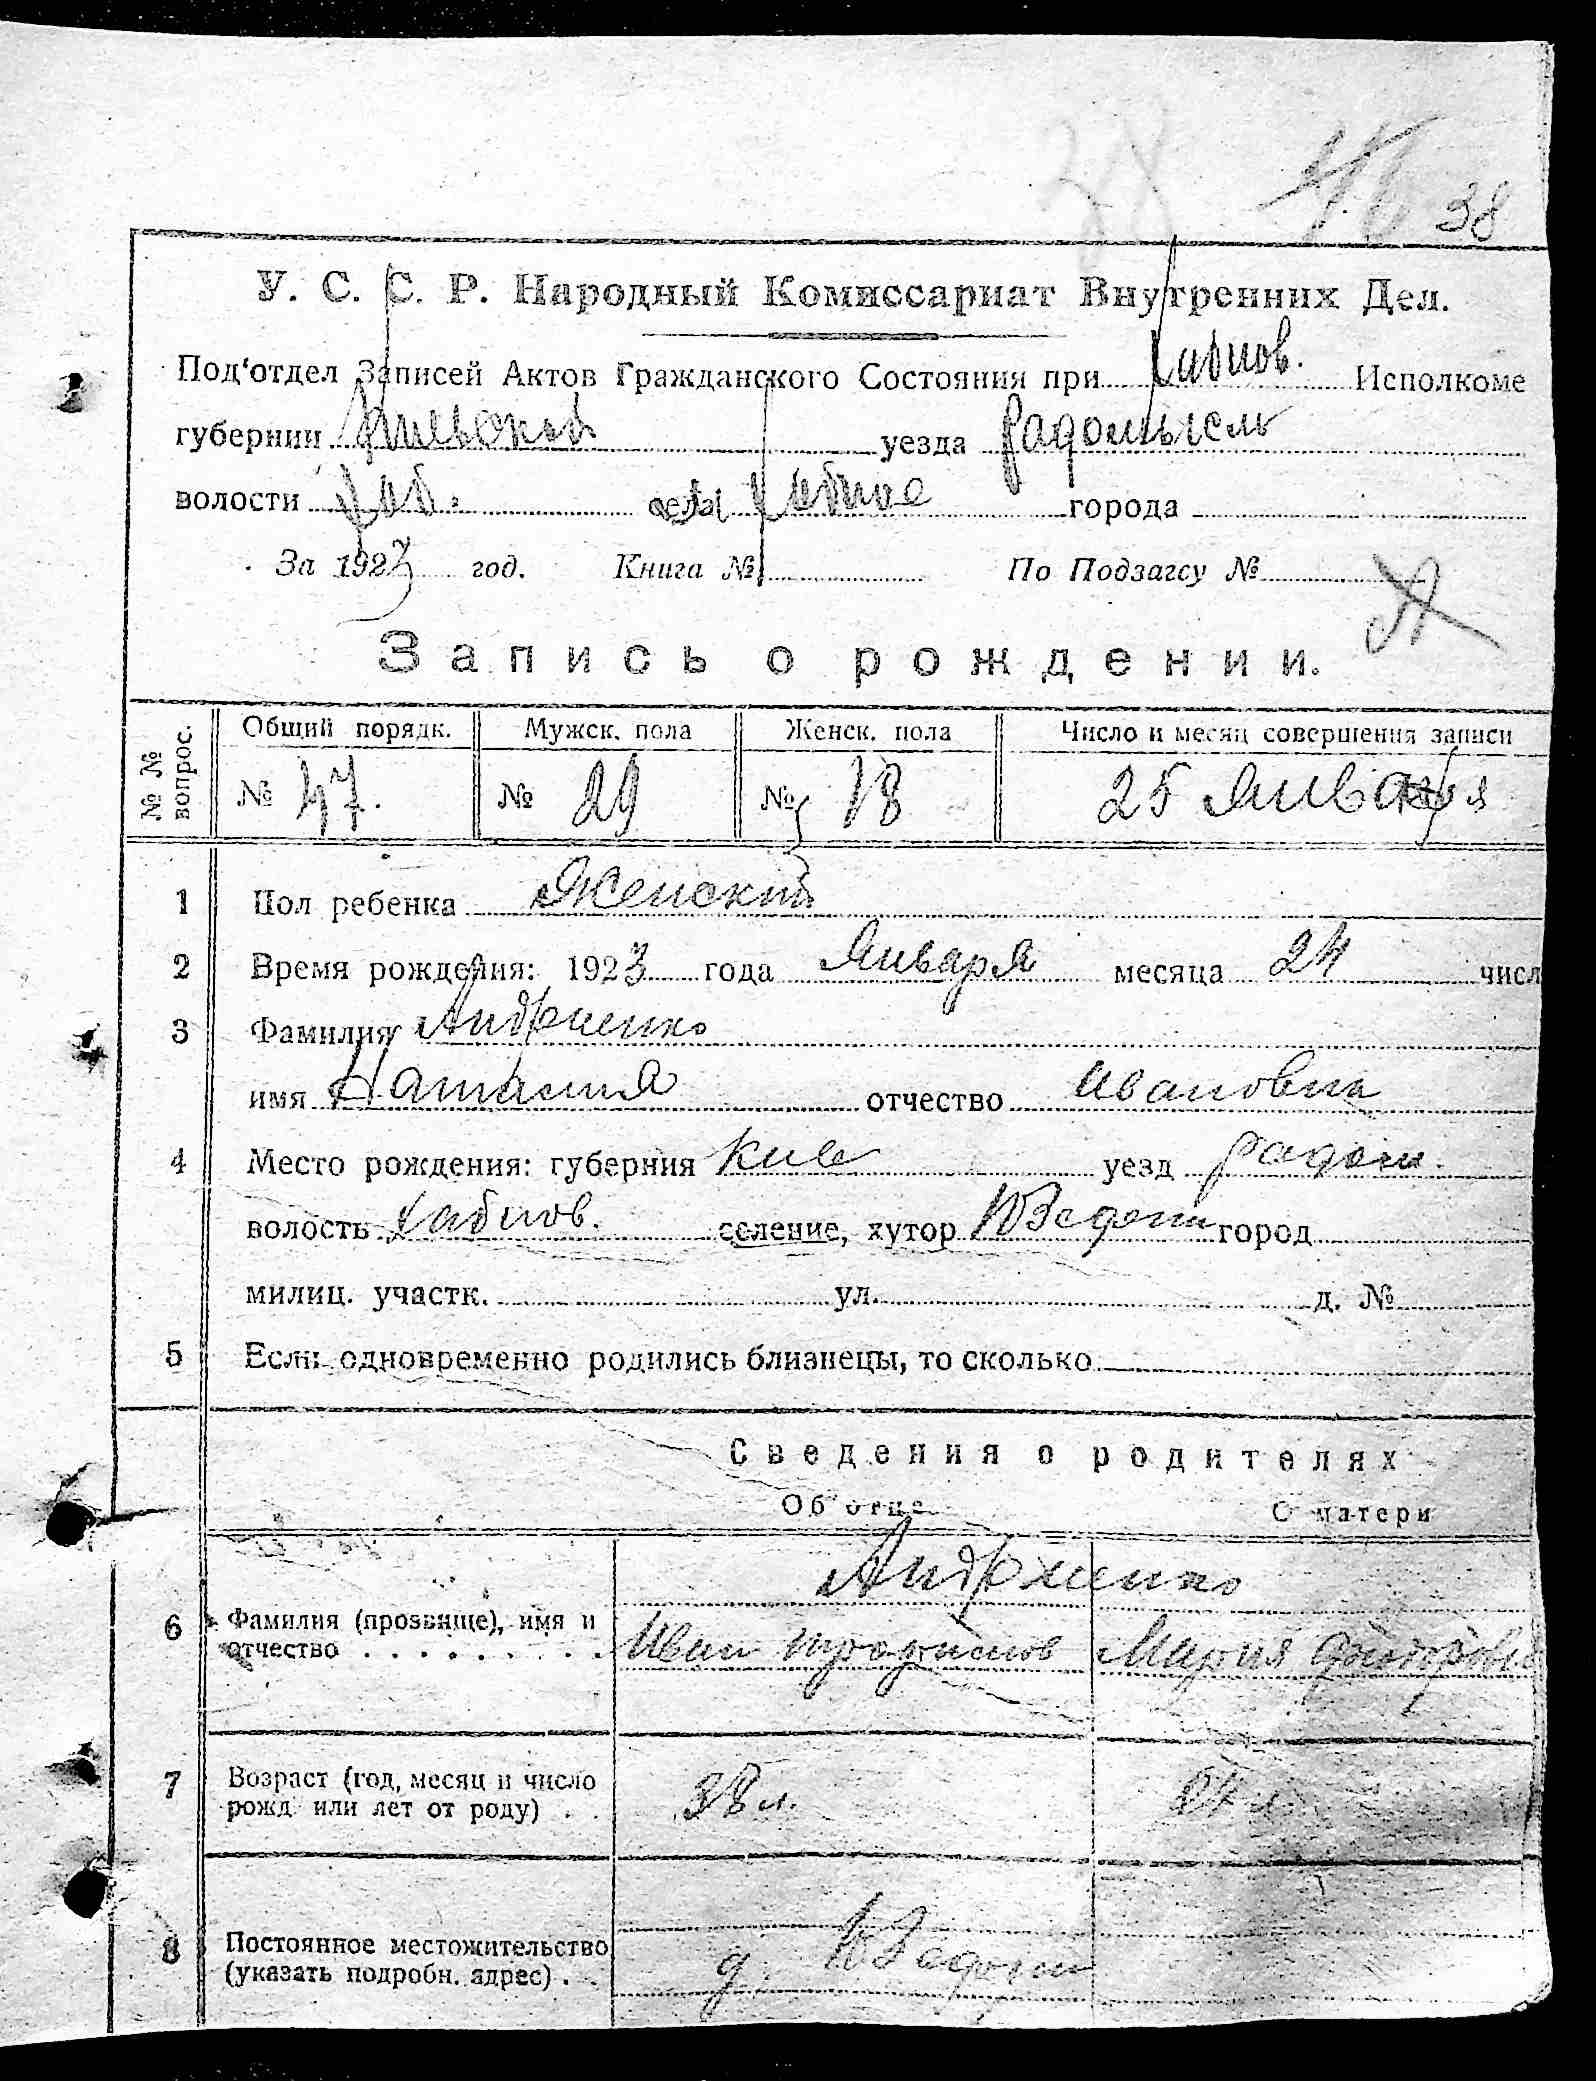 38
У. С. С. Р. Народный Комиссариат Внутренних Дел.
Под'отдел Записей Актов Гражданского Состояния при Хабнов. Исполкоме
губернии Киевской уезда Радомысль
волости Хаб. села Хабное города
За 1923 год. Книга № По Подзагсу №
Запись о рождении.
№ № вопрос. Общий порядк. Мужск. пола Женск. пола Число и месяц совершения записи
№ 47. № 29 № 18 25 Января
1 Пол ребенка Женский
2 Время рождения: 1923 года Января месяца 24 числ
3 Фамилия Андриенко
имя Наталия отчество Ивановна
4 Место рождения: губерния Киев уезд Радом.
волость Хабнов. селение, хутор город
милиц. участк. ул. д. №
5 Если одновременно родились близнецы, то сколько
Сведения о родителях
Об отце О матери
Андриенко
6 Фамилия (прозвище), имя и
отчество . . . . . . . . . Иван Трофимов Мария
7 Возраст (год, месяц и число
рожд или лет от роду) . . 38 л.
8 Постоянное местожительство
(указать подробн. адрес) . . д.